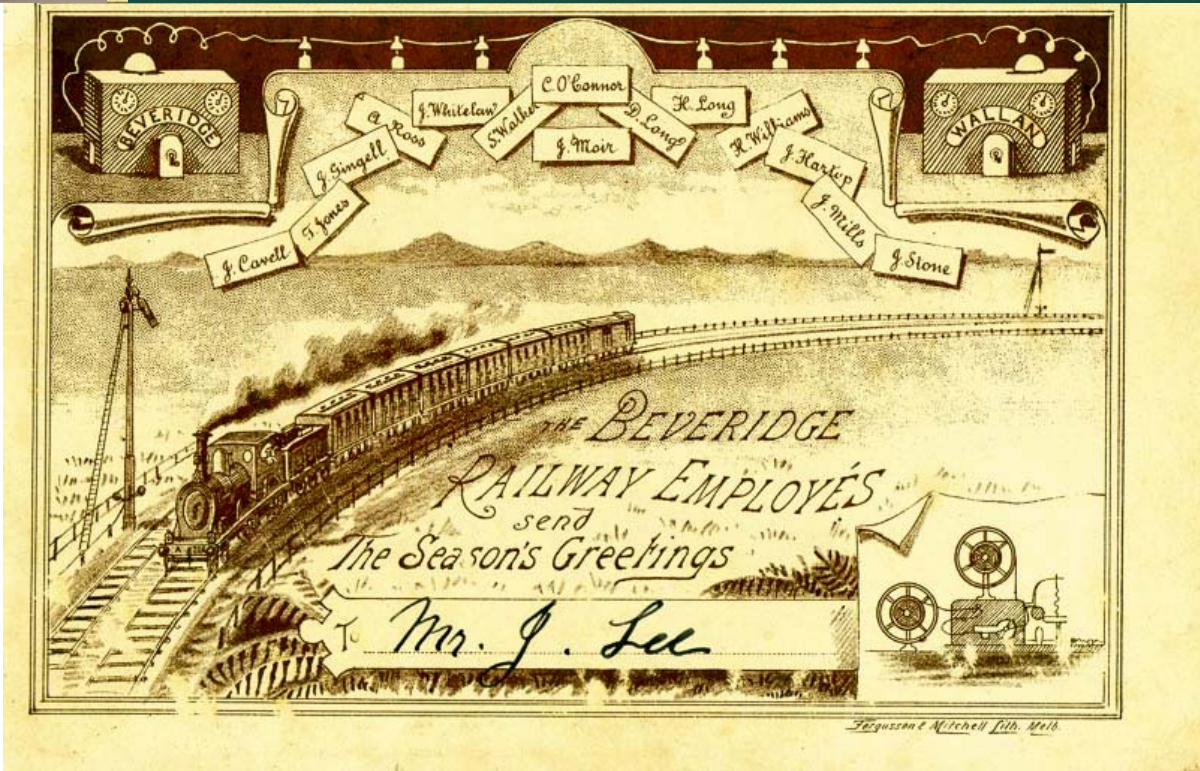 BEVERIDGE
WALLAN
J. Cavell
T. Jones
J. Gingell
A. Ross
J. Whitelaw
S. Walker
C. O'Connor
J. Moir
D. Long
H. Long
R. Williams
J. Hartop
J. Mills
J Stone
THE BEVERIDGE
RAILWAY EMPLOYÉS
send
The Season's Greetings
To Mr. J. Lee
Fergusson & Mitchell Lith. Melb.